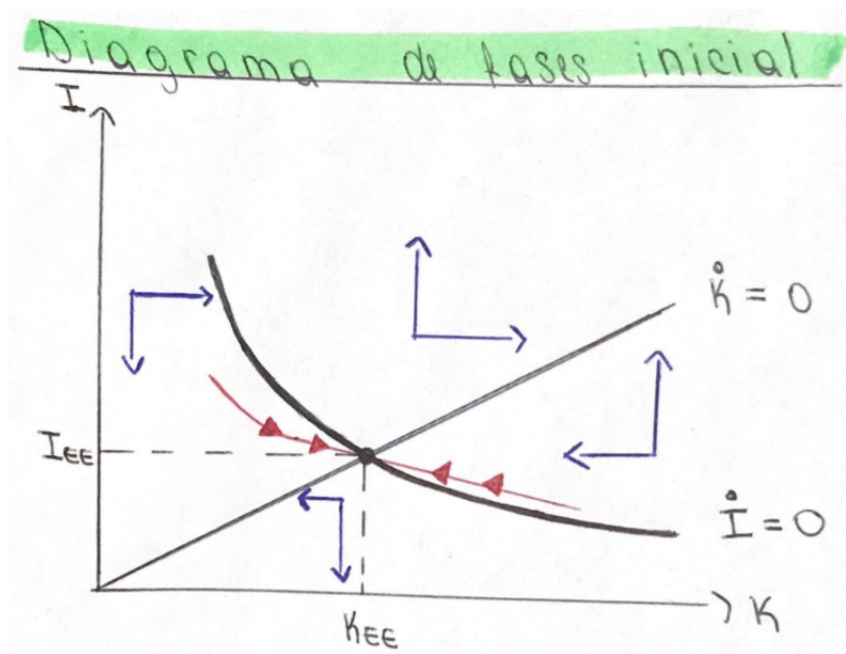 Diagrama de fases inicial
I
K̊ = 0
I_EE
İ = 0
K
K_EE